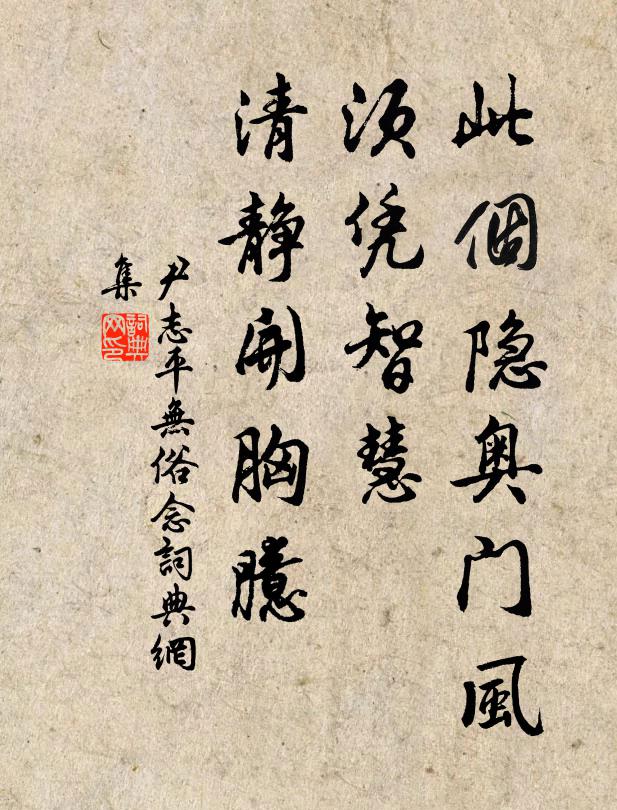 此個隐奥门風
须凭智慧
清静開胸臆
尹志平無俗念詞典網
集
詞典网印